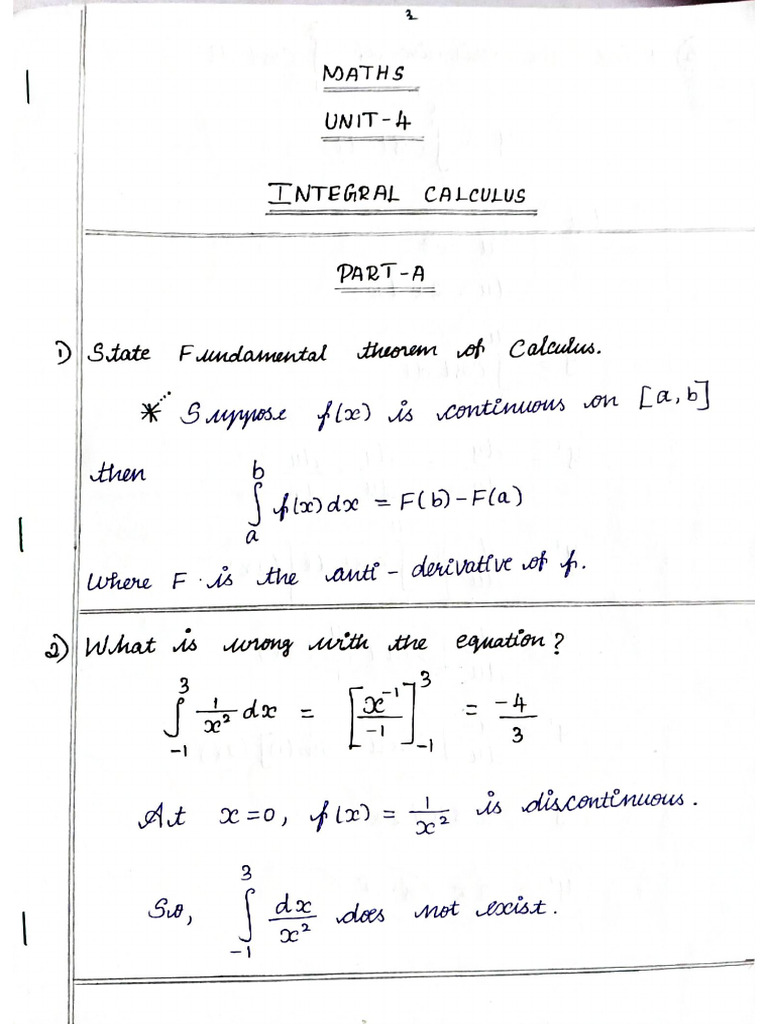 2
MATHS
UNIT-4
INTEGRAL CALCULUS
PART-A
1) State Fundamental theorem of Calculus.
* Suppose f(x) is continuous on [a,b]
then ∫_a^b f(x) dx = F(b) - F(a)
Where F is the anti-derivative of f.
2) What is wrong with the equation?
∫_{-1}^{3} 1/x² dx = [x⁻¹/-1]_{-1}^{3} = -4/3
At x=0, f(x) = 1/x² is discontinuous.
So, ∫_{-1}^{3} dx/x² does not exist.